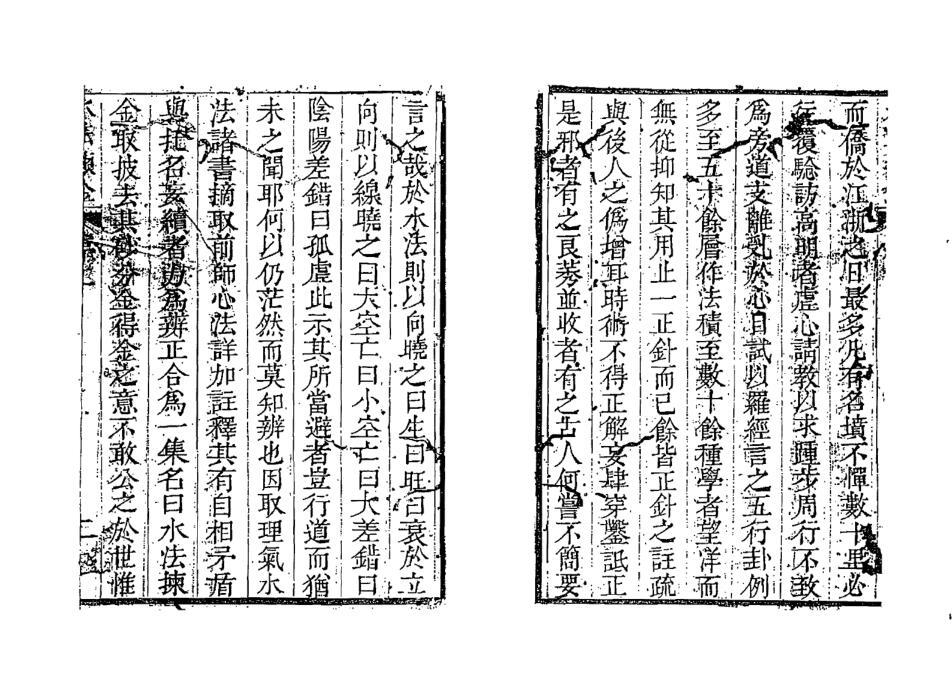 而僑於江湖之日最多凡有名墳不憚數十里必
行覆騐訪高明者虛心請教以求踵步周行不致
爲旁道支離乳於心目試以羅經言之五行卦例
多至五十餘層作法積至數十餘種學者望洋而
無從抑知其用止一正針而已餘皆正針之註疏
與後人之僞增耳時術不得正解妄肆穿鑿詆正
是邪者有之良莠並收者有之古人何嘗不簡要
言之哉於水法則以向曉之曰生曰旺曰衰於立
向則以線曉之曰大空亡曰小空亡曰大差錯曰
陰陽差錯曰孤虛此示其所當避者豈行道而猶
未之聞耶何以仍茫然而莫知辨也因取理氣水
法諸書摘取前師心法詳加註釋其有自相矛盾
與托名妄續者力爲辨正合爲一集名曰水法揀
金取披去其砂汾金得金之意不敢公之於世惟
水法揀金
二